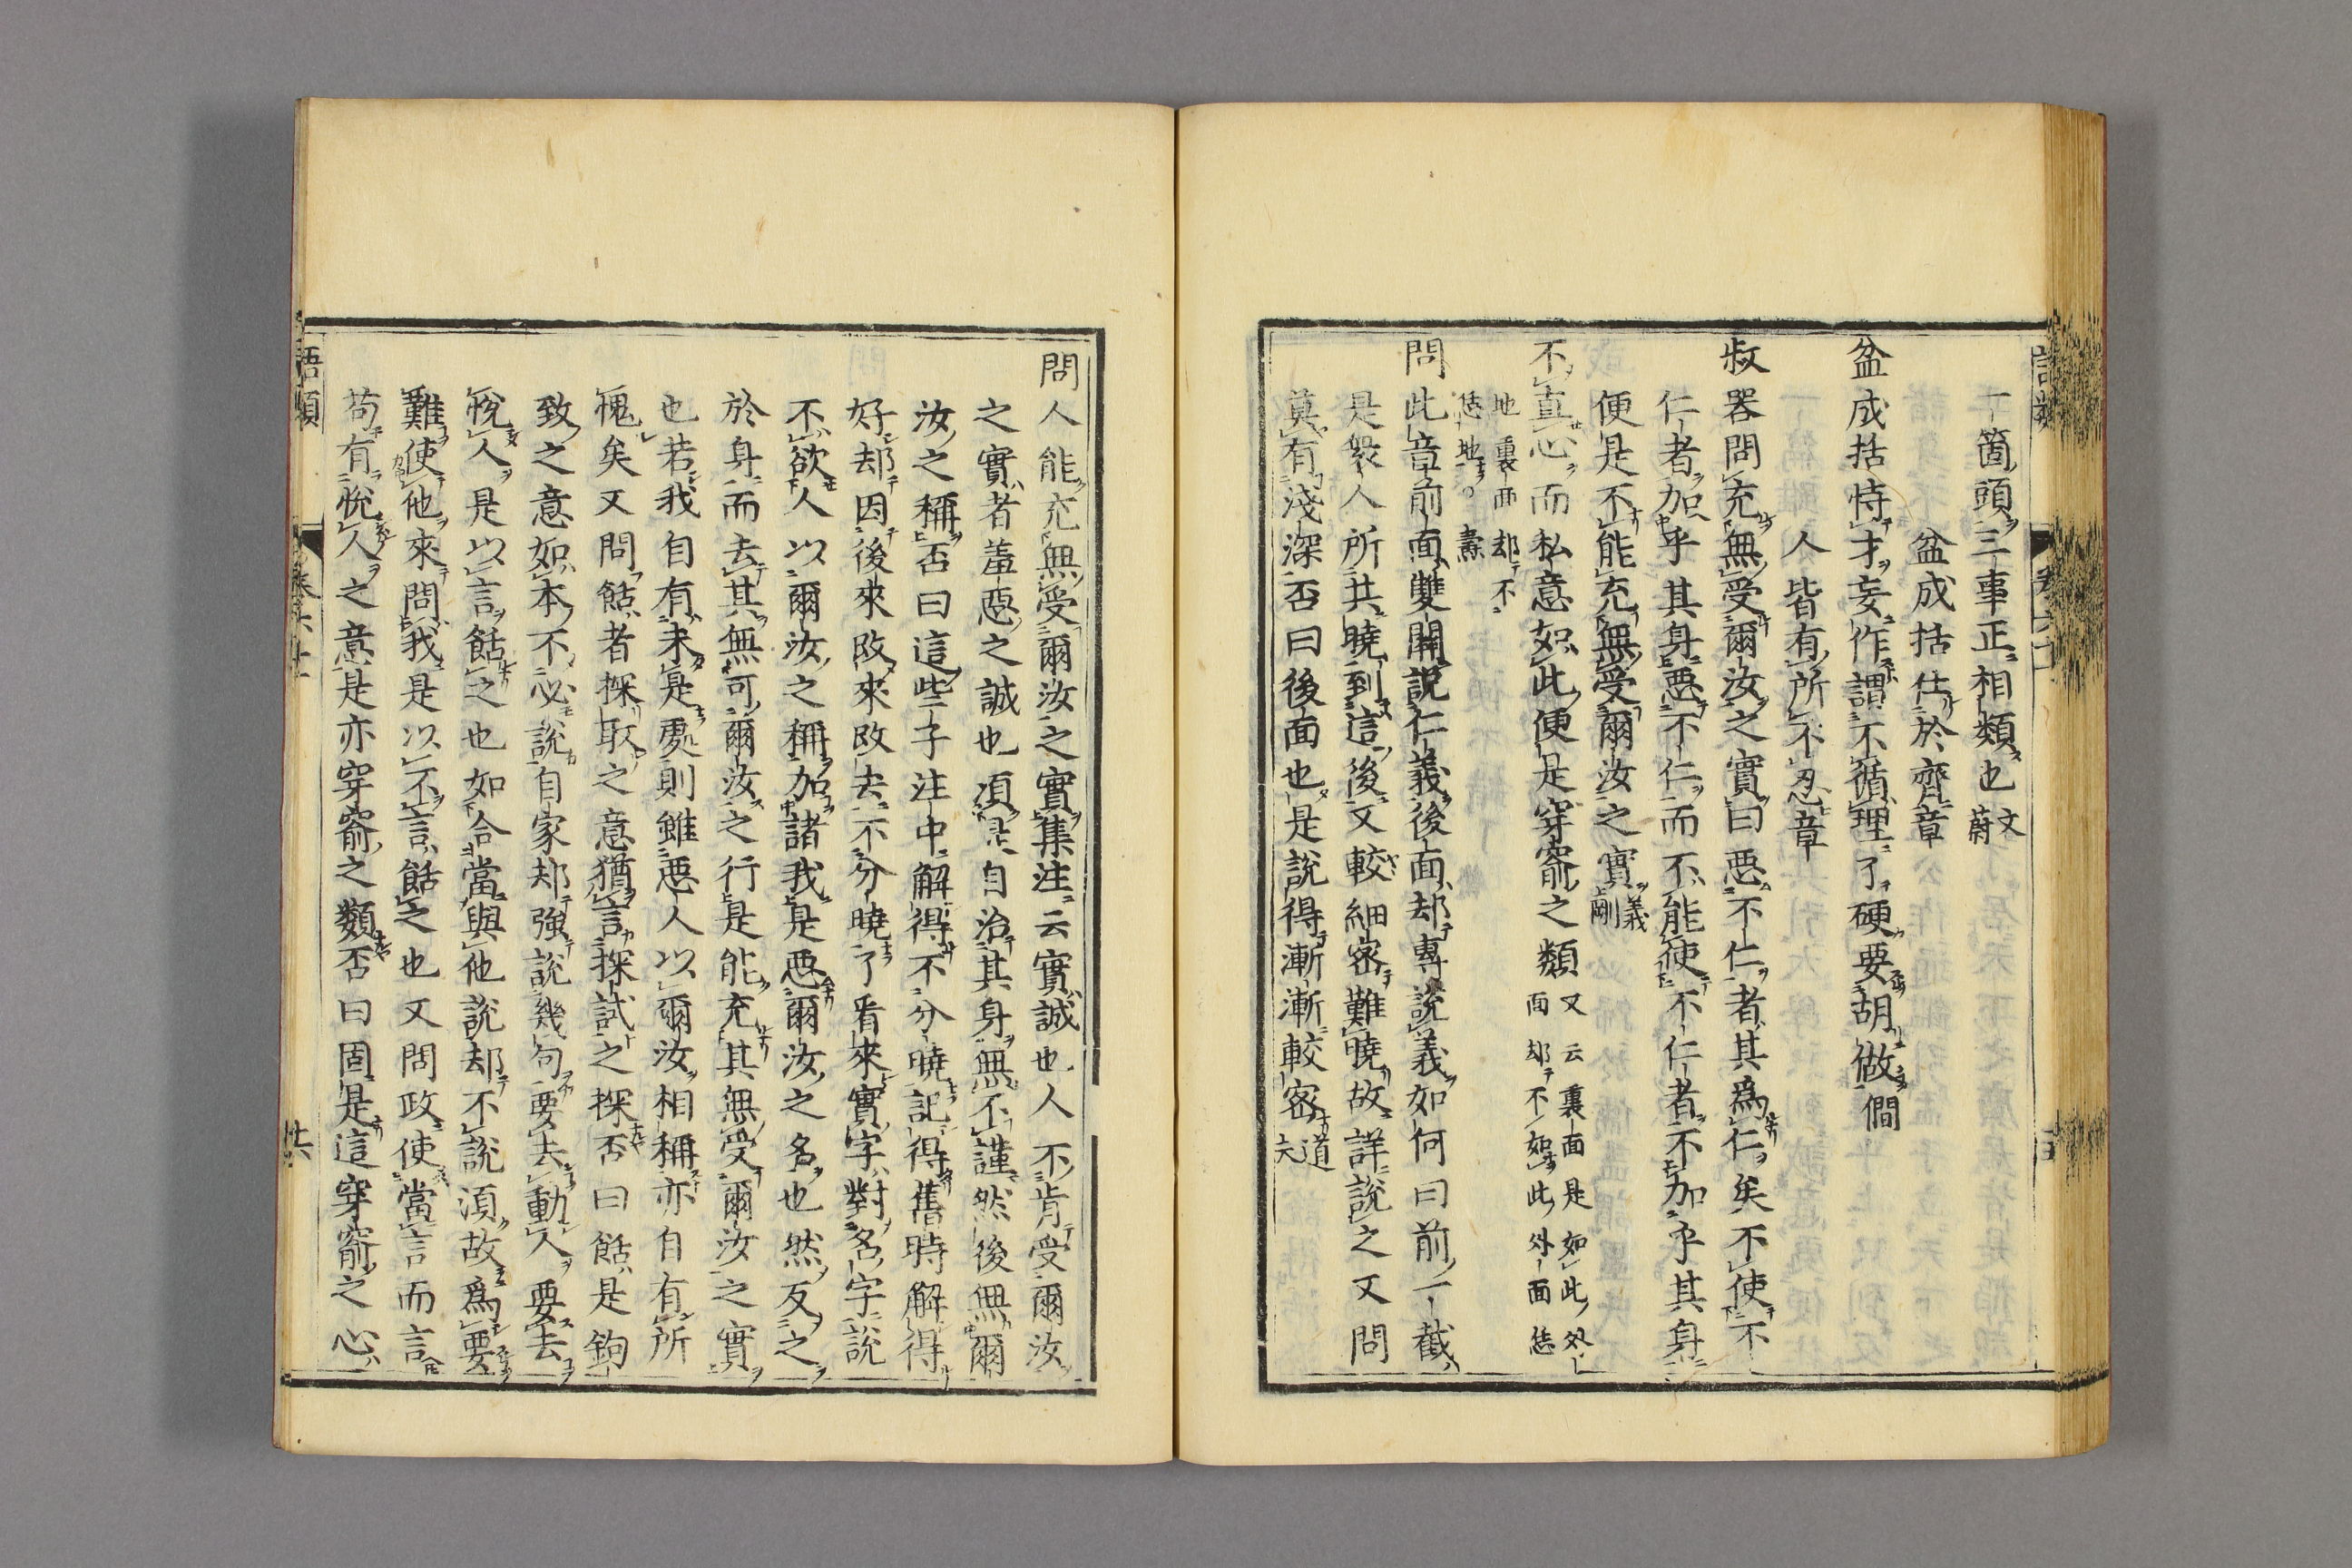 一箇頭三事正相類也文蔚
盆成括仕於齊章
盆成括恃才妄作謂不循理了硬要胡做僩
人皆有所不忍章
叔器問充無受爾汝之實曰惡不仁者其爲仁矣不使不
仁者加乎其身惡不仁而不能使不仁者不加乎其身
便是不能充無受爾汝之實義剛
不直心而私意如此便是穿窬之類又云裏面是如此外面却不如此外面恁
地裏面却不恁地○燾
問此章前面雙關說仁義後面却專說義如何曰前一截
是衆人所共曉到這後又較細密難曉故詳說之又問
莫有淺深否曰後面也是說得漸漸較密道夫
問人能充無受爾汝之實集注云實誠也人不肯受爾汝
之實者羞惡之誠也須是自治其身無不謹然後無爾
汝之稱否曰這些子注中解得不分曉記得舊時解得
好却因後來改來改去不分曉了看來實字對名字說
不欲人以爾汝之稱加諸我是惡爾汝之名也然反之
於身而去其無可爾汝之行是能充其無受爾汝之實
也若我自有未是處則雖惡人以爾汝相稱亦自有所
愧矣又問餂者探取之意猶言探試之探否曰餂是鉤
致之意如本不必說自家却強說幾句要去動人要去
悅人是以言餂之也如合當與他說却不說須故爲要
難使他來問我是以不言餂之也又問政使當言而言
苟有悅人之意是亦穿窬之類否曰固是這穿窬之心
語類
卷六十一
廿六